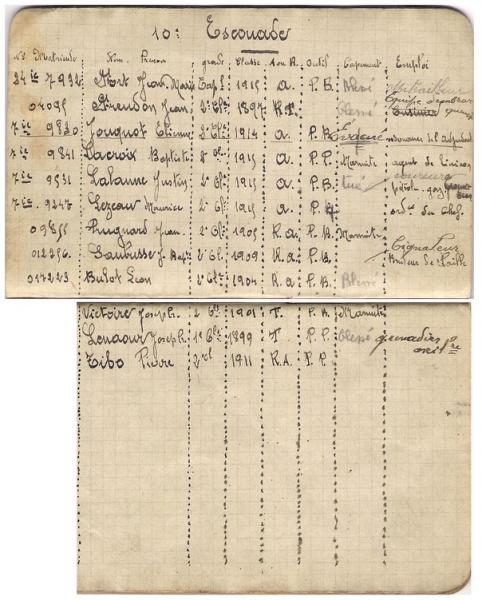 10e Escouade
No Matricule Nom Prénom grade Classe A ou R Outil Campement Emploi
24 ic 7932 Jean Marie Cap l 1915 a. P. B. Blessé
04095 Jean 2e Cl. 1897 R.T. Blessé Equipe
7 ic 9820 Jouquot Etienne 2e Cl. 1914 a. P. B Evacué
7 ic 9841 Lacroix Baptiste 2e Cl. 1915 a. P. P. Marmite agent de liaison
7 ic 9531 Lalanne Justin 2e Cl. 1915 a. P. B. tué
7 ic 9247 Lezeau Maurice 2e Cl. 1915 a. P. B. ord. du Chef.
09855 Prugnard Jean 2e Cl. 1905 R.a. P. B. Marmite
012356 Gaubusse J. 2e Cl. 1909 R.a. P. B. Signaleur
017223 Bulot Léon 2e Cl. 1904 R.a. P. B. Blessé
Victoire Joseph. 2e Cl. 1901 T. P. B. Marmite
Lenaour Joseph. 1e Cl. 1899 T. P. P. Blessé grenadier
Tibo Pierre 2e cl 1911 R.A. P. P.